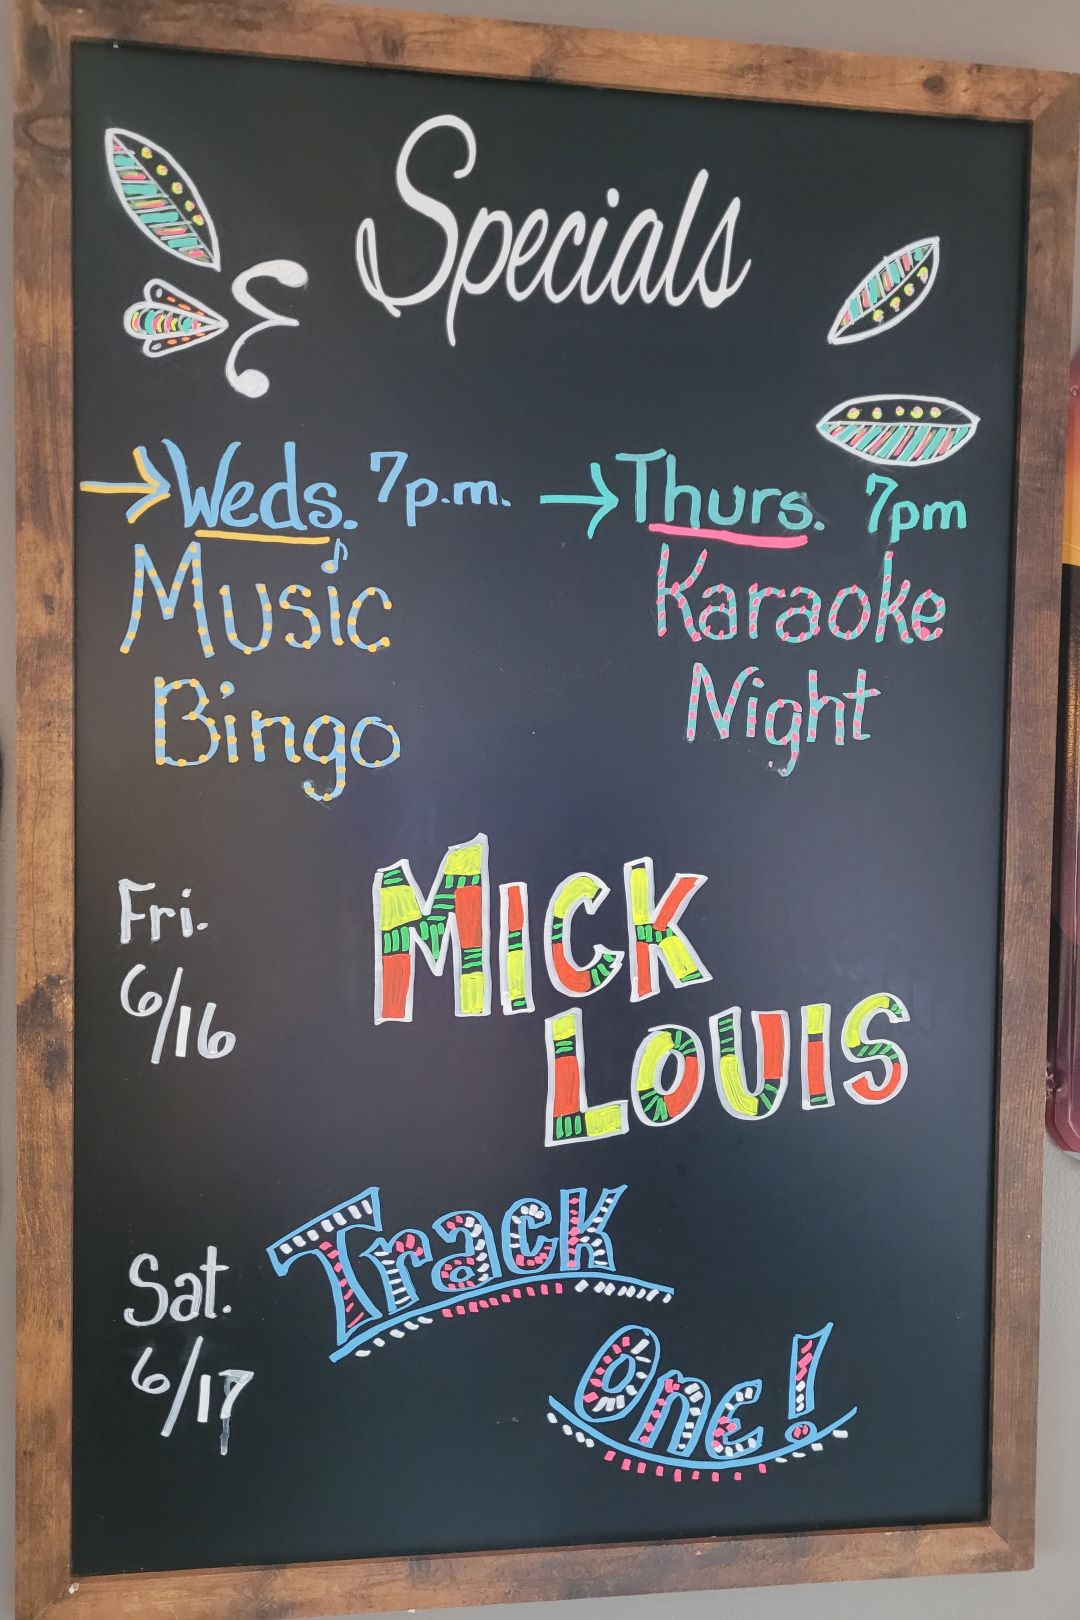 Specials
Weds. 7p.m.
Music
Bingo
Thurs. 7pm
Karaoke
Night
Fri.
6/16
Mick
Louis
Sat.
6/17
Track
One!